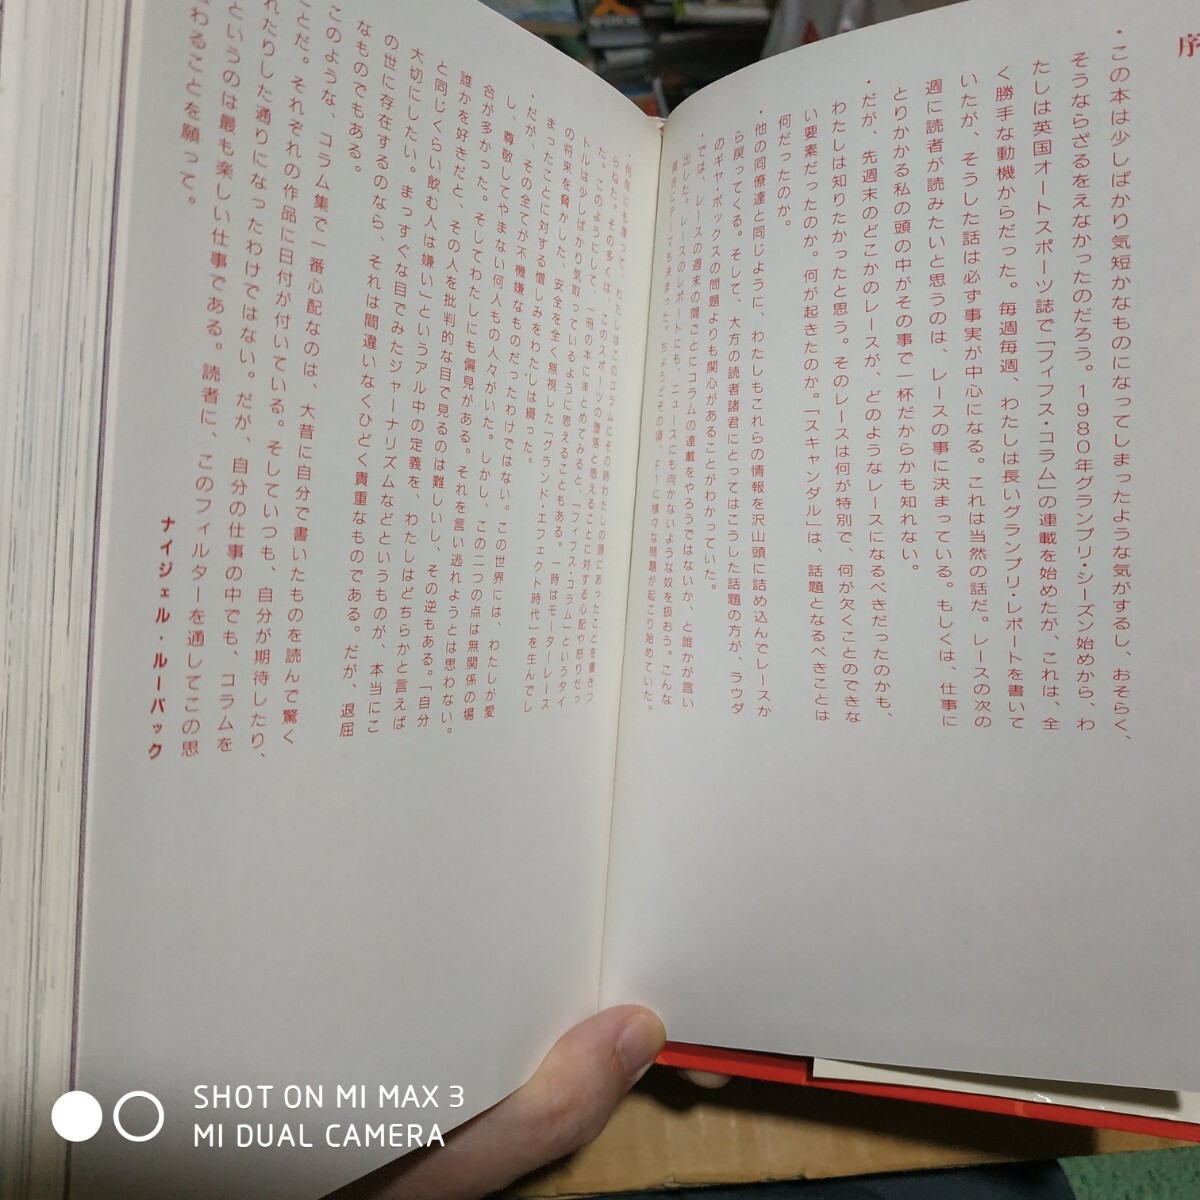 序
・この本は少しばかり気短かなものになってしまったような気がするし、おそらく、
そうならざるをえなかったのだろう。1980年グランプリ・シーズン始めから、わ
たしは英国オートスポーツ誌で「フィフス・コラム」の連載を始めたが、これは、全
く勝手な動機からだった。毎週毎週、わたしは長いグランプリ・レポートを書いて
いたが、そうした話は必ず事実が中心になる。これは当然の話だ。レースの次の
週に読者が読みたいと思うのは、レースの事に決まっている。もしくは、仕事に
とりかかる私の頭の中がその事で一杯だからかも知れない。
・だが、先週末のどこかのレースが、どのようなレースになるべきだったのかも、
わたしは知りたかったと思う。そのレースは何が特別で、何が欠くことのできな
い要素だったのか。何が起きたのか。「スキャンダル」は、話題となるべきことは
何だったのか。
・他の同僚達と同じように、わたしもこれらの情報を沢山頭に詰め込んでレースか
ら戻ってくる。そして、大方の読者諸君にとってはこうした話題の方が、ラウダ
のギヤ・ボックスの問題よりも関心があることがわかっていた。
・では、レースの週末の間ごとにコラムの連載をやろうではないか、と誰かが言い
出した。レースのレポートにも、ニュースにも向かないような奴を扱おう。こんな
テーマも決まった。ちょうどその頃、F1に様々な問題が起こり始めていた。
・何年にも渡って、わたしはこのコラムにその時わたしの頭にあったことを書きつ
らねた。その多くは、このスポーツの堕落と思えることに対する心配や怒りだっ
た。このようにして、一冊の本にまとめてみると、「フィフス・コラム」というタイ
トルは少しばかり気取っているように思えることもある。一時はモータレース
の将来を脅かした、安全を全く無視した「グランド・エフェクト時代」を生んでし
まったことに対する憎しみをわたしは綴った。
・だが、その全てが不機嫌なものだったわけではない。この世界には、わたしが愛
し、尊敬してやまない何人もの人々がいた。しかし、この二つの点は無関係の場
合が多かった。そしてわたしにも偏見がある。それを言い逃れようとは思わない。
誰かを好きだと、その人を批判的な目で見るのは難しいし、その逆もある。「自分
と同じくらい飲む人は嫌い」というアル中の定義を、わたしはどちらかと言えば
大切にしたい。まっすぐな目でみたジャーナリズムなどというものが、本当にこ
の世に存在するのなら、それは間違いなくひどく貴重なものである。だが、退屈
なものでもある。
このような、コラム集で一番心配なのは、大昔に自分で書いたものを読んで驚く
ことだ。それぞれの作品に日付が付いている。そしていつも、自分が期待したり、
れたりした通りになったわけではない。だが、自分の仕事の中でも、コラムを
というのは最も楽しい仕事である。読者に、このフィルターを通してこの思
わることを願って。
ナイジェル・ルーバック
SHOT ON MI MAX 3
MI DUAL CAMERA